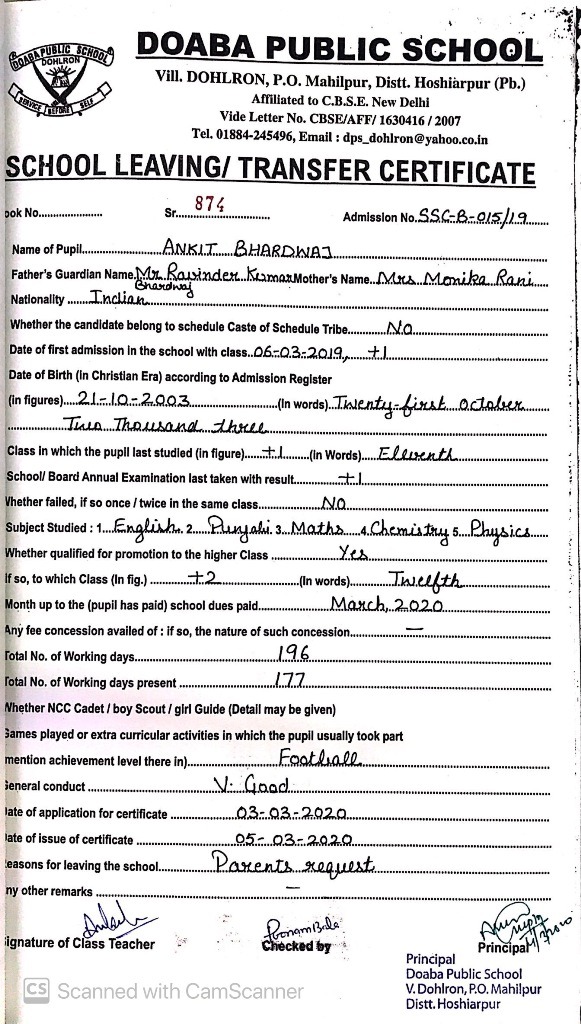 DOABA PUBLIC SCHOOL
DOHLRON
SERVICE BEFORE SELF
DOABA PUBLIC SCHOOL
Vill. DOHLRON, P.O. Mahilpur, Distt. Hoshiarpur (Pb.)
Affiliated to C.B.S.E. New Delhi
Vide Letter No. CBSE/AFF/ 1630416 / 2007
Tel. 01884-245496, Email : dps_dohlron@yahoo.co.in
SCHOOL LEAVING/ TRANSFER CERTIFICATE
ook No.................... Sr. 874 Admission No. SSC-B-015/19
Name of Pupil ANKIT BHARDWAJ
Father's Guardian Name. Mr. Ravinder Kumar Bhardwaj Mother's Name Mrs Monika Rani
Nationality Indian
Whether the candidate belong to schedule Caste of Schedule Tribe NO
Date of first admission in the school with class 06-03-2019, +1
Date of Birth (in Christian Era) according to Admission Register
(in figures) 21-10-2003 (In words) Twenty-first October
Two Thousand three
Class in which the pupil last studied (in figure) +1 (in Words) Eleventh
School/ Board Annual Examination last taken with result +1
Whether failed, if so once / twice in the same class NO
Subject Studied : 1. English 2. Punjabi 3. Maths 4 Chemistry 5. Physics
Whether qualified for promotion to the higher Class Yes
If so, to which Class (In fig.) +2 (In words) Twelfth
Month up to the (pupil has paid) school dues paid March, 2020
Any fee concession availed of : if so, the nature of such concession —
Total No. of Working days 196
Total No. of Working days present 177
Whether NCC Cadet / boy Scout / girl Guide (Detail may be given)
Games played or extra curricular activities in which the pupil usually took part
mention achievement level there in) Football
General conduct V. Good
ate of application for certificate 03-03-2020
ate of issue of certificate 05-03-2020
easons for leaving the school Parents request
ny other remarks —
Poonam Bala
ignature of Class Teacher Checked by Principal
Principal
Doaba Public School
V. Dohlron, P.O. Mahilpur
Distt. Hoshiarpur
CS Scanned with CamScanner